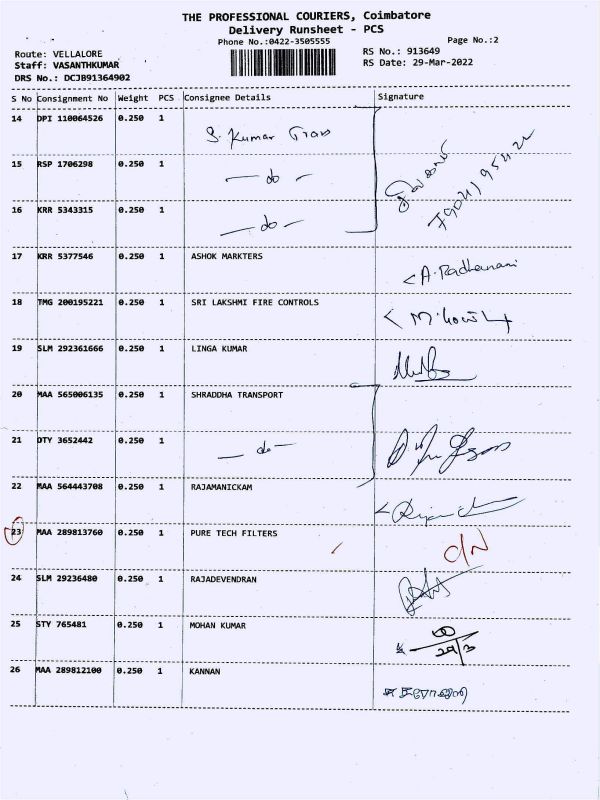 THE PROFESSIONAL COURIERS, Coimbatore
Delivery Runsheet - PCS
Phone No.:0422-3505555 Page No.:2
Route: VELLALORE RS No.: 913649
Staff: VASANTHKUMAR RS Date: 29-Mar-2022
DRS No.: DCJB91364902
S No Consignment No Weight PCS Consignee Details Signature
14 DPI 110064526 0.250 1 S. Kumar Trans
15 RSP 1706298 0.250 1 — do —
16 KRR 5343315 0.250 1 — do —
17 KRR 5377546 0.250 1 ASHOK MARKTERS
18 TMG 200195221 0.250 1 SRI LAKSHMI FIRE CONTROLS
19 SLM 292361666 0.250 1 LINGA KUMAR
20 MAA 565006135 0.250 1 SHRADDHA TRANSPORT
21 OTY 3652442 0.250 1 — do —
22 MAA 564443708 0.250 1 RAJAMANICKAM
23 MAA 289813760 0.250 1 PURE TECH FILTERS
24 SLM 29236480 0.250 1 RAJADEVENDRAN
25 STY 765481 0.250 1 MOHAN KUMAR 29/3
26 MAA 289812100 0.250 1 KANNAN